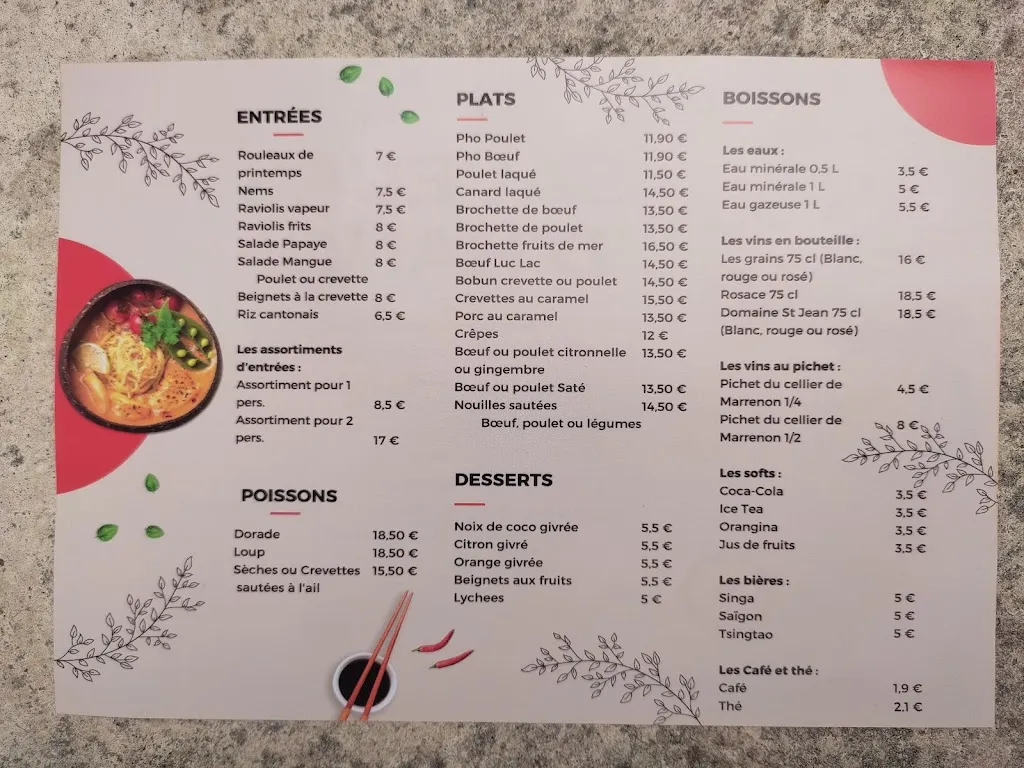 ENTRÉES
Rouleaux de 7 €
printemps
Nems 7,5 €
Raviolis vapeur 7,5 €
Raviolis frits 8 €
Salade Papaye 8 €
Salade Mangue 8 €
Poulet ou crevette
Beignets à la crevette 8 €
Riz cantonais 6,5 €
Les assortiments
d'entrées :
Assortiment pour 1
pers. 8,5 €
Assortiment pour 2
pers. 17 €
POISSONS
Dorade 18,50 €
Loup 18,50 €
Sèches ou Crevettes 15,50 €
sautées à l'ail
PLATS
Pho Poulet 11,90 €
Pho Bœuf 11,90 €
Poulet laqué 11,50 €
Canard laqué 14,50 €
Brochette de bœuf 13,50 €
Brochette de poulet 13,50 €
Brochette fruits de mer 16,50 €
Bœuf Luc Lac 14,50 €
Bobun crevette ou poulet 14,50 €
Crevettes au caramel 15,50 €
Porc au caramel 13,50 €
Crêpes 12 €
Bœuf ou poulet citronnelle 13,50 €
ou gingembre
Bœuf ou poulet Saté 13,50 €
Nouilles sautées 14,50 €
Bœuf, poulet ou légumes
DESSERTS
Noix de coco givrée 5,5 €
Citron givré 5,5 €
Orange givrée 5,5 €
Beignets aux fruits 5,5 €
Lychees 5 €
BOISSONS
Les eaux :
Eau minérale 0,5 L 3,5 €
Eau minérale 1 L 5 €
Eau gazeuse 1 L 5,5 €
Les vins en bouteille :
Les grains 75 cl (Blanc, 16 €
rouge ou rosé)
Rosace 75 cl 18,5 €
Domaine St Jean 75 cl 18,5 €
(Blanc, rouge ou rosé)
Les vins au pichet :
Pichet du cellier de 4,5 €
Marrenon 1/4
Pichet du cellier de 8 €
Marrenon 1/2
Les softs :
Coca-Cola 3,5 €
Ice Tea 3,5 €
Orangina 3,5 €
Jus de fruits 3,5 €
Les bières :
Singa 5 €
Saïgon 5 €
Tsingtao 5 €
Les Café et thé :
Café 1,9 €
Thé 2,1 €